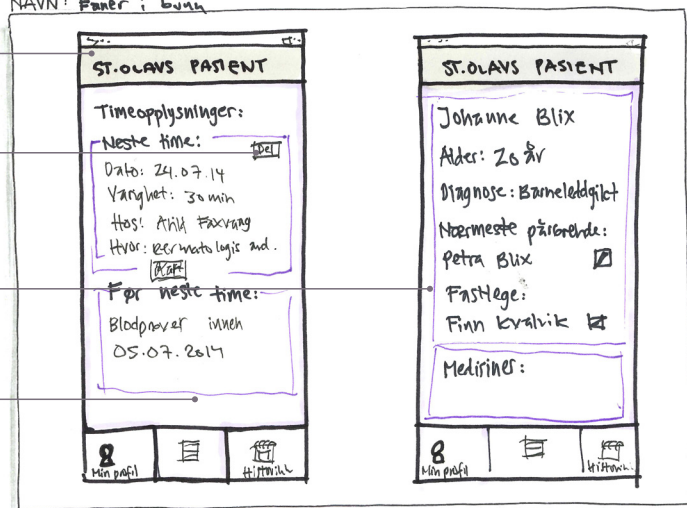 NAVN: Faner i bunn
ST.OLAVS PASIENT
Timeopplysninger:
Neste time:
Del
Dato: 24.07.14
Varighet: 30min
Hos: Arild Faxvaag
Hvor:
Kart
Før neste time:
Blodprøver innen
05.07.2014
Min profil
Historikk
ST.OLAVS PASIENT
Johanne Blix
Alder: 20 år
Diagnose: Barneleddgikt
Nærmeste pårørende:
Petra Blix
Fastlege:
Finn Kvalvik
Medisiner:
Min profil
Historikk